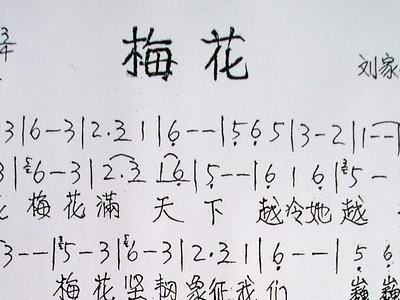 3/4
梅花
刘家
3|6-3|2.3 1|6--|5 6 5|3-2|1--|
3|6-3|2.3 16|5--|6 1 6|5-
梅花滿天下 越冷她越
3--|5-3|6-3|2.3 1|6--|5 6
梅花坚韧象征我们 巍巍